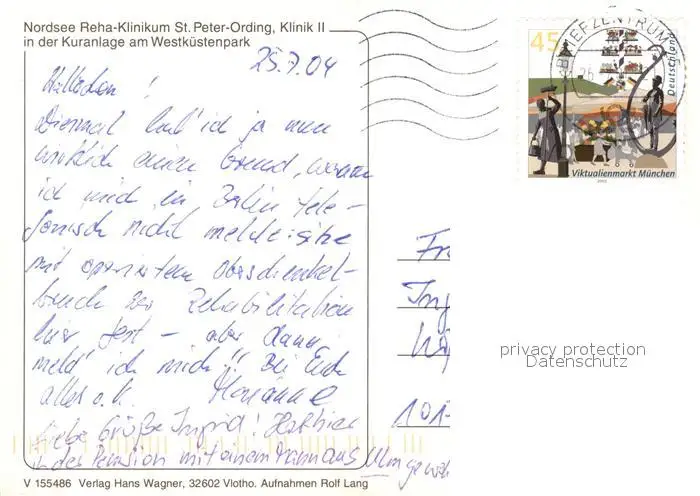 Nordsee Reha-Klinikum St. Peter-Ording, Klinik II
in der Kuranlage am Westküstenpark
25.7.04
Diesmal hab' ich ja nun
wirklich einen Grund, warum
ich mich in Berlin tele-
fonisch nicht melde: sitze
mit operiertem Oberschenkel-
bruch zur Rehabilitation
hier fest – aber dann
meld' ich mich!! Bei Euch
alles o.k. Marianne
Liebe Grüße Ingrid! Hast hier
in der Pension mit einem Mann aus Ulm
V 155486 Verlag Hans Wagner, 32602 Vlotho. Aufnahmen Rolf Lang
BRIEFZENTRUM
45
Deutschland
Viktualienmarkt München
2003
Fr
Ing
101
privacy protection
Datenschutz